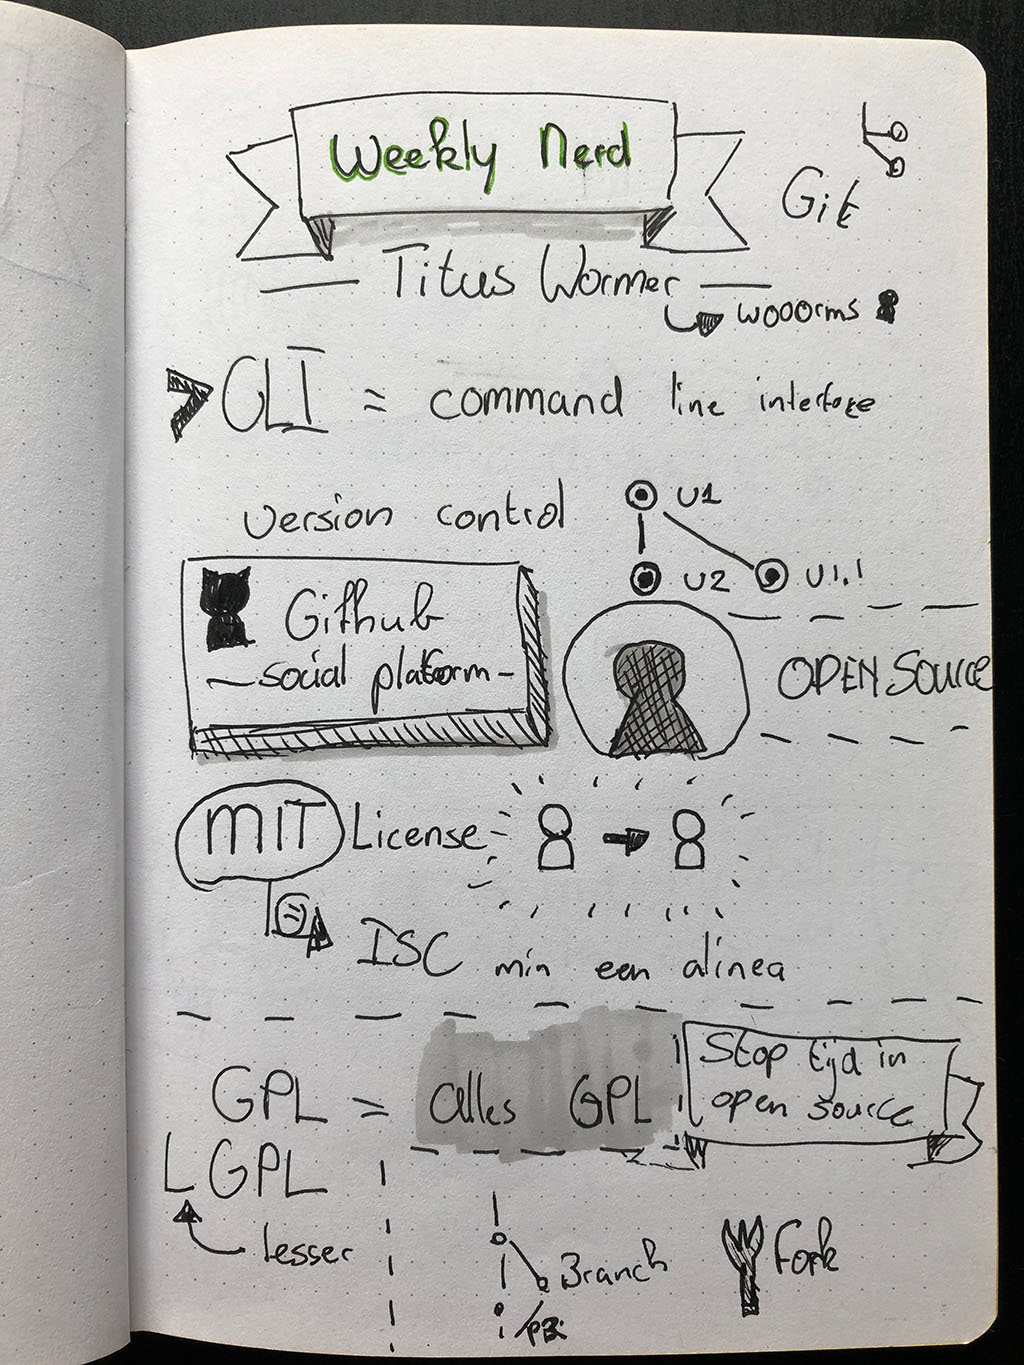 Weekly Nerd
Git
Titus Wormer
wooorms
CLI = command line interface
version control
v1
v2
v1.1
Github
social platform
OPEN SOURCE
MIT License
ISC min een alinea
GPL = alles GPL
Stop tijd in
open source
LGPL
lesser
Branch
Fork